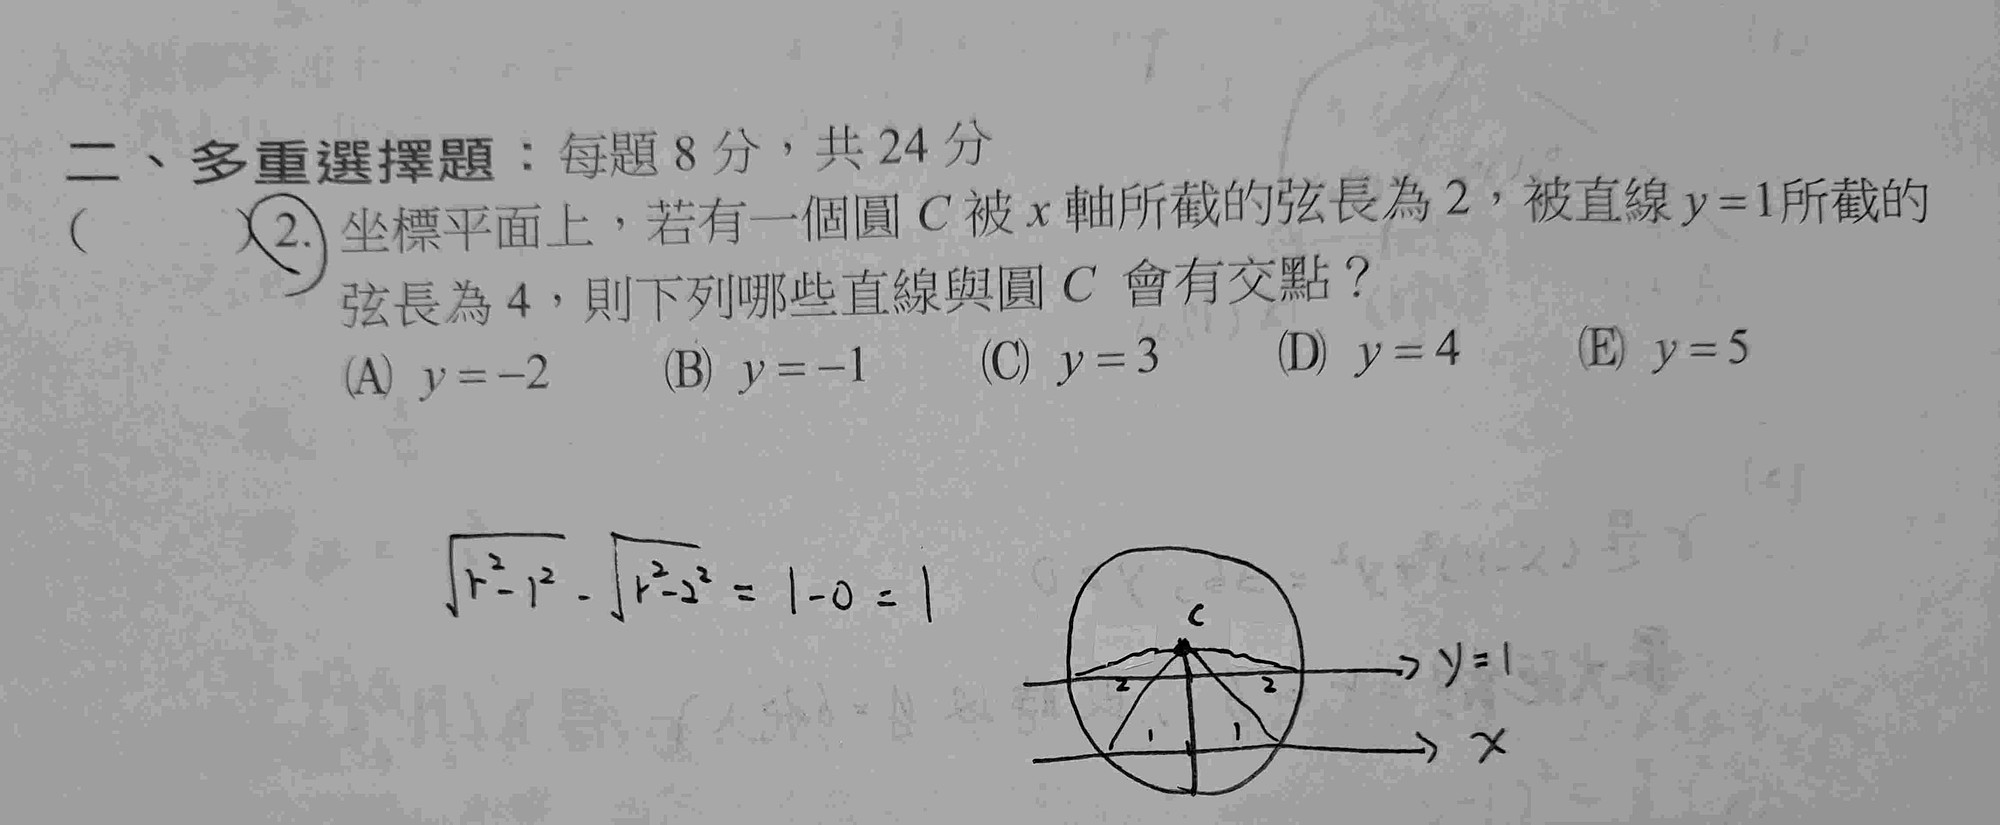 二、多重選擇題：每題 8 分，共 24 分
(　　) 2. 坐標平面上，若有一個圓 C 被 x 軸所截的弦長為 2，被直線 y=1所截的
弦長為 4，則下列哪些直線與圓 C 會有交點？
(A) y=-2 (B) y=-1 (C) y=3 (D) y=4 (E) y=5
√(r²-1²) - √(r²-2²) = 1-0 = 1
C
2 2 y=1
1 1 x